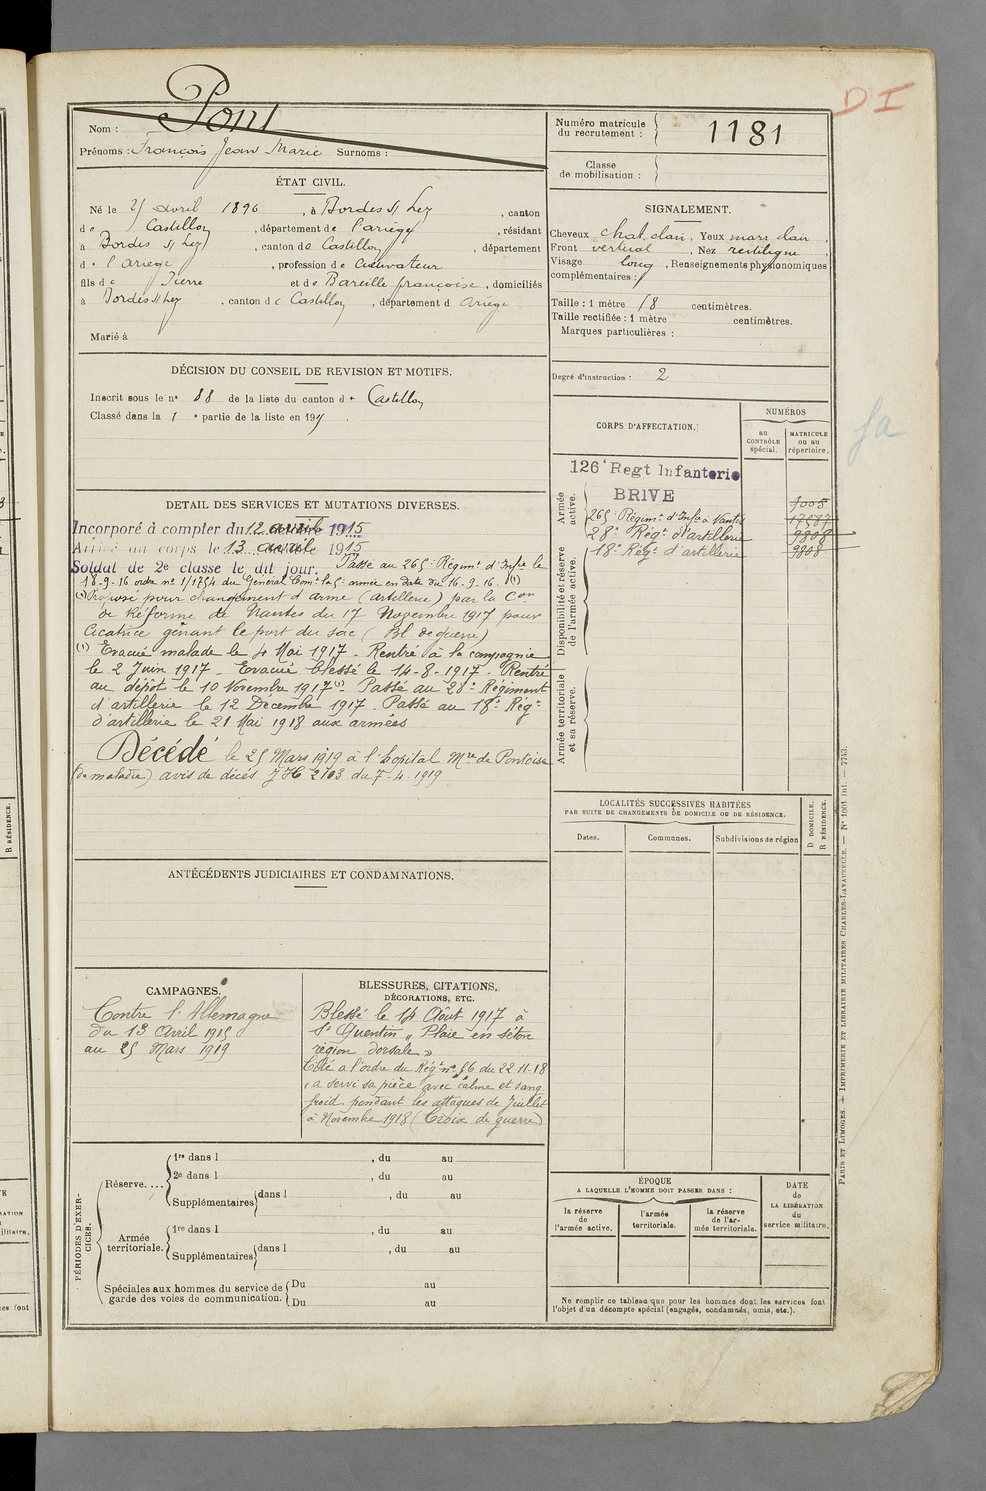 DI
Nom : Pont
Prénoms : François Jean Marie Surnoms :
Numéro matricule du recrutement : 1181
Classe de mobilisation :
ÉTAT CIVIL.
Né le 25 avril 1896, à Bordes s/ Lez, canton
de Castillon, département de l'ariège, résidant
à Bordes s/ Lez, canton de Castillon, département
d l'ariège, profession de cultivateur
fils de Pierre et de Bareille françoise, domiciliés
à Bordes s/ Lez, canton de Castillon, département d ariège
Marié à
SIGNALEMENT.
Cheveux chat. clair, Yeux marr clair,
Front vertical, Nez rectiligne,
Visage long, Renseignements physionomiques
complémentaires :
Taille : 1 mètre 58 centimètres.
Taille rectifiée : 1 mètre centimètres.
Marques particulières :
Degré d'instruction : 2
DÉCISION DU CONSEIL DE REVISION ET MOTIFS.
Inscrit sous le n° 88 de la liste du canton de Castillon
Classé dans la 1e partie de la liste en 1915.
CORPS D'AFFECTATION.
NUMÉROS
au CONTRÔLE spécial.
MATRICULE ou au répertoire.
Armée active.
126e Regt Infanterie
BRIVE
1005
265e Régimt d'Infie à Nantes 17587
28e Régt d'artillerie 9808
18e Régt d'artillerie 9808
Disponibilité et réserve de l'armée active.
Armée territoriale et sa réserve.
DETAIL DES SERVICES ET MUTATIONS DIVERSES.
Incorporé à compter du 12 avril 1915
Arrivé au corps le 13 avril 1915
Soldat de 2e classe le dit jour. Passé au 265e Régimt d'Infie le
18-9-16 ordre n° 1/1754 du Général Comt la 5e armée en date du 16-9-16. (1)
(1) Proposé pour changement d'arme (artillerie) par la Con
de Réforme de Nantes du 17 Novembre 1917 pour
Cicatrice gênant le port du sac (Bl de guerre)
(1) Evacué malade le 4 Mai 1917 - Rentré à la compagnie
le 2 Juin 1917 - Evacué blessé le 14-8-1917 - Rentré
au dépôt le 10 Novembre 1917 (1) Passé au 28e Régiment
d'artillerie le 12 Décembre 1917. Passé au 18e Régt
d'artillerie le 21 Mai 1918 aux armées
Décédé le 25 Mars 1919 à l'hopital Mre de Pontoise
(de maladie) avis de décès 2103 du 7-4-1919
LOCALITÉS SUCCESSIVES HABITÉES
PAR SUITE DE CHANGEMENTS DE DOMICILE OU DE RÉSIDENCE.
Dates. Communes. Subdivisions de région
D DOMICILE. R RÉSIDENCE.
ANTÉCÉDENTS JUDICIAIRES ET CONDAMNATIONS.
CAMPAGNES.
Contre l'Allemagne
du 13 Avril 1915
au 25 Mars 1919
BLESSURES, CITATIONS,
DÉCORATIONS, ETC.
Blessé le 14 Août 1917 à
St Quentin "Plaie en séton
région dorsale"
Cité à l'ordre du Régt n° 56 du 22-11-18
"a servi sa pièce avec calme et sang
froid pendant les attaques de Juillet
à Novembre 1918 (Croix de guerre)
PÉRIODES D'EXERCICES.
Réserve....
1re dans l , du au
2e dans l , du au
Supplémentaires dans l , du au
Armée territoriale.
1re dans l , du au
Supplémentaires dans l , du au
Spéciales aux hommes du service de
garde des voies de communication.
Du au
Du au
ÉPOQUE
A LAQUELLE L'HOMME DOIT PASSER DANS :
la réserve de l'armée active.
l'armée territoriale.
la réserve de l'armée territoriale.
DATE de LA LIBÉRATION du service militaire.
Ne remplir ce tableau que pour les hommes dont les services font
l'objet d'un décompte spécial (engagés, condamnés, omis, etc.).
PARIS ET LIMOGES. — IMPRIMERIE ET LIBRAIRIE MILITAIRES CHARLES-LAVAUZELLE. — N° 1001 int. — 7743.
R RÉSIDENCE.